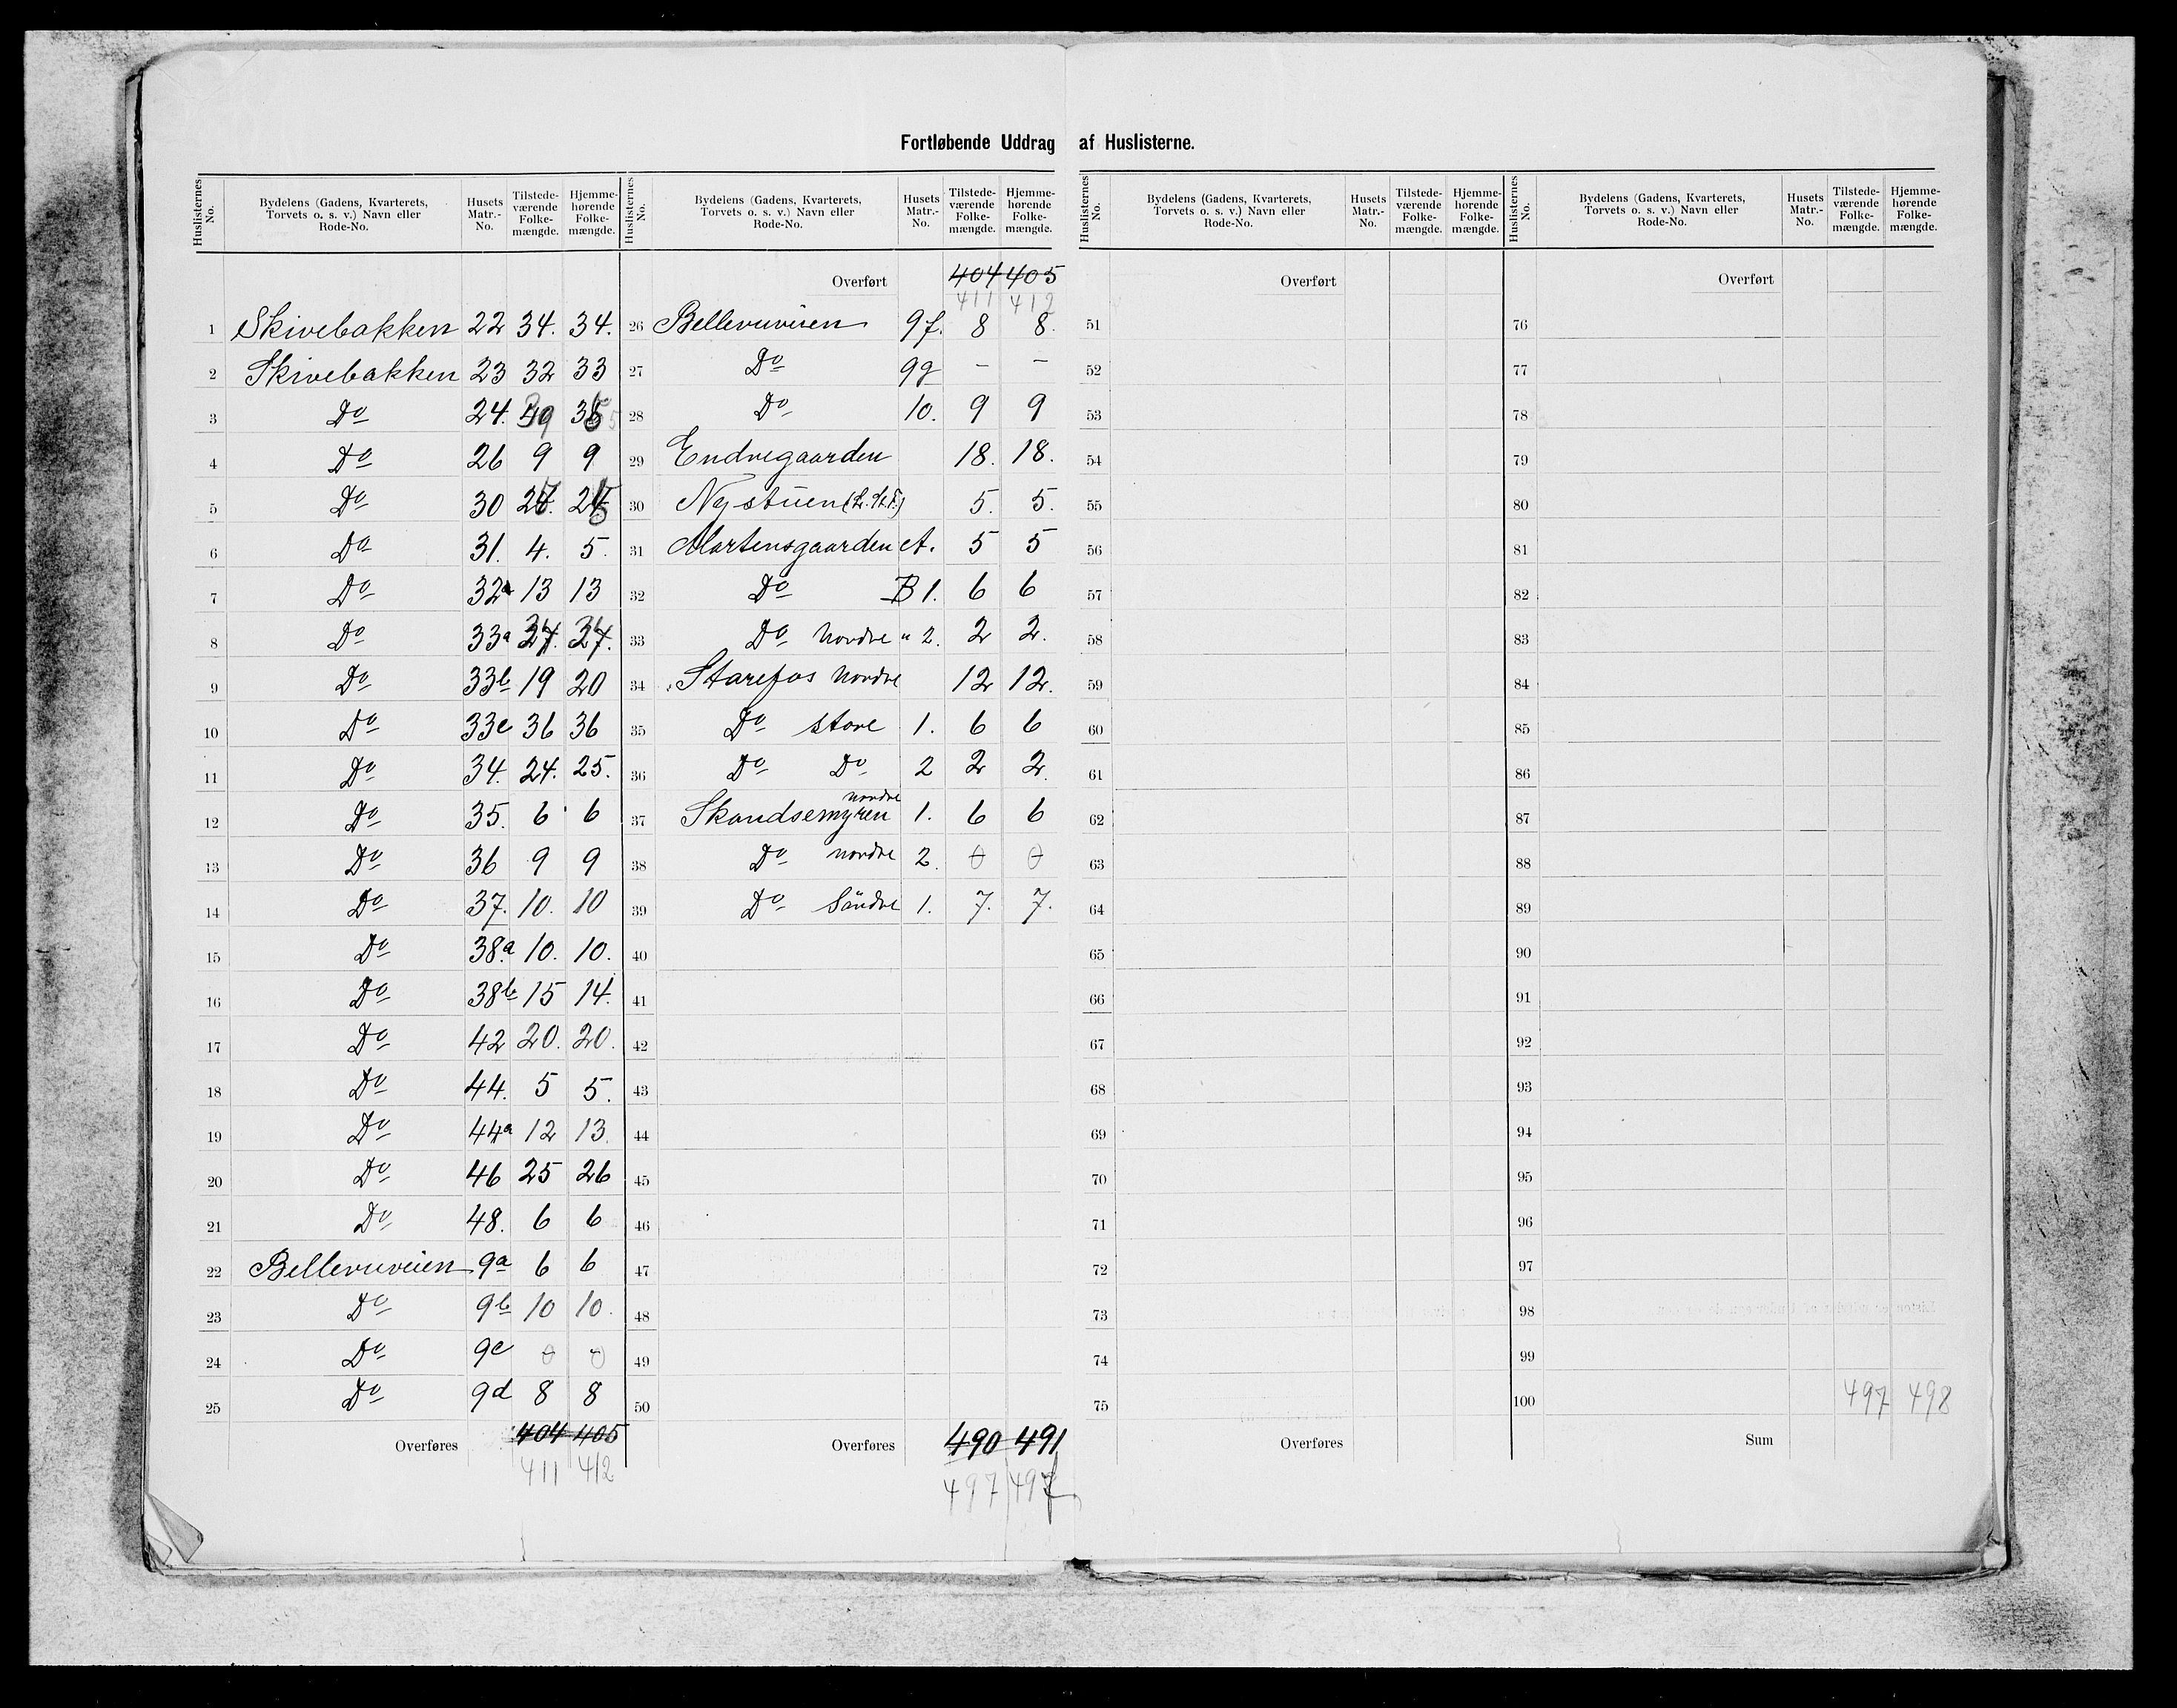 Fortløbende Uddrag af Huslisterne.
Huslisternes No. | Bydelens (Gadens, Kvarterets, Torvets o. s. v.) Navn eller Rode-No. | Husets Matr.-No. | Tilstede-værende Folke-mængde. | Hjemme-hørende Folke-mængde.
1 Skivebakken 22 34. 34.
2 Skivebakken 23 32 33
3 Do 24. 39
4 Do 26 9 9
5 Do 30
6 Do 31. 4. 5.
7 Do 32a 13 13
8 Do 33a
9 Do 33b 19 20
10 Do 33c 36 36
11 Do 34. 24. 25.
12 Do 35. 6 6
13 Do 36 9 9
14 Do 37. 10. 10
15 Do 38a 10. 10.
16 Do 38b 15 14.
17 Do 42 20. 20.
18 Do 44. 5 5.
19 Do 44a 12 13.
20 Do 46 25 26
21 Do 48. 6 6
22 Bellevuveien 9a 6 6
23 Do 9b 10 10.
24 Do 9c 0 0
25 Do 9d 8 8
Overføres 404 405
411 412
Huslisternes No. | Bydelens (Gadens, Kvarterets, Torvets o. s. v.) Navn eller Rode-No. | Husets Matr.-No. | Tilstede-værende Folke-mængde. | Hjemme-hørende Folke-mængde.
Overført 404 405
411 412
26 Bellevuveien 9f. 8 8.
27 Do 9g – –
28 Do 10. 9 9
29 Endregaarden 18. 18.
30 Nystuen 5. 5.
31 Martensgaarden A. 5 5
32 Do B 1. 6 6
33 Do Nordre " 2. 2 2.
34 Starefos Nordre 12 12.
35 Do store 1. 6 6
36 Do Do 2 2 2.
37 Skandsemyren nordre 1. 6 6
38 Do nordre 2. 0 0
39 Do Söndre 1. 7. 7.
40
41
42
43
44
45
46
47
48
49
50
Overføres 490 491
497 497
Huslisternes No. | Bydelens (Gadens, Kvarterets, Torvets o. s. v.) Navn eller Rode-No. | Husets Matr.-No. | Tilstede-værende Folke-mængde. | Hjemme-hørende Folke-mængde.
Overført
51
52
53
54
55
56
57
58
59
60
61
62
63
64
65
66
67
68
69
70
71
72
73
74
75
Overføres
Huslisternes No. | Bydelens (Gadens, Kvarterets, Torvets o. s. v.) Navn eller Rode-No. | Husets Matr.-No. | Tilstede-værende Folke-mængde. | Hjemme-hørende Folke-mængde.
Overført
76
77
78
79
80
81
82
83
84
85
86
87
88
89
90
91
92
93
94
95
96
97
98
99
100 497 498
Sum